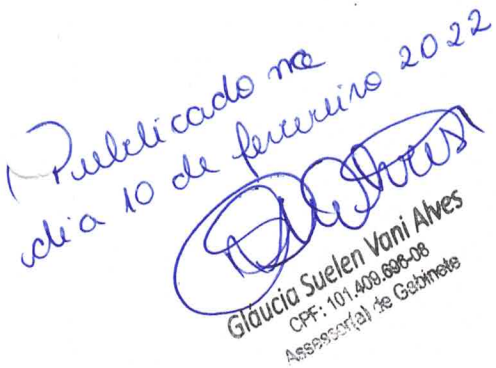 Publicado no
dia 10 de fevereiro 2022
Gláucia Suelen Vani Alves
CPF: 101.409.696-08
Assessor(a) de Gabinete